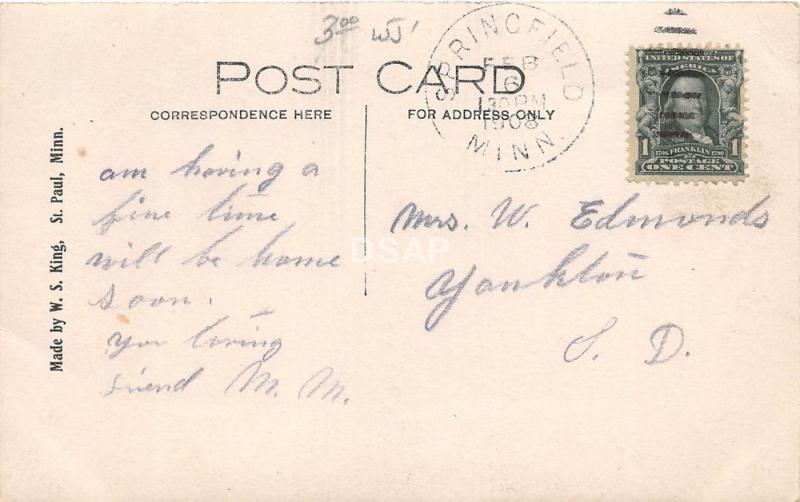 3.00 WJ
POST CARD
CORRESPONDENCE HERE
FOR ADDRESS ONLY
SPRINGFIELD
FEB
6
130PM
1908
MINN.
UNITED STATES OF
AMERICA
1 1706 FRANKLIN 1790 1
POSTAGE
ONE CENT
Made by W. S. King, St. Paul, Minn.
am having a
fine time
will be home
soon.
your loving
friend M. M.
Mrs. W. Edmonds
Yankton
S. D.
DSAP